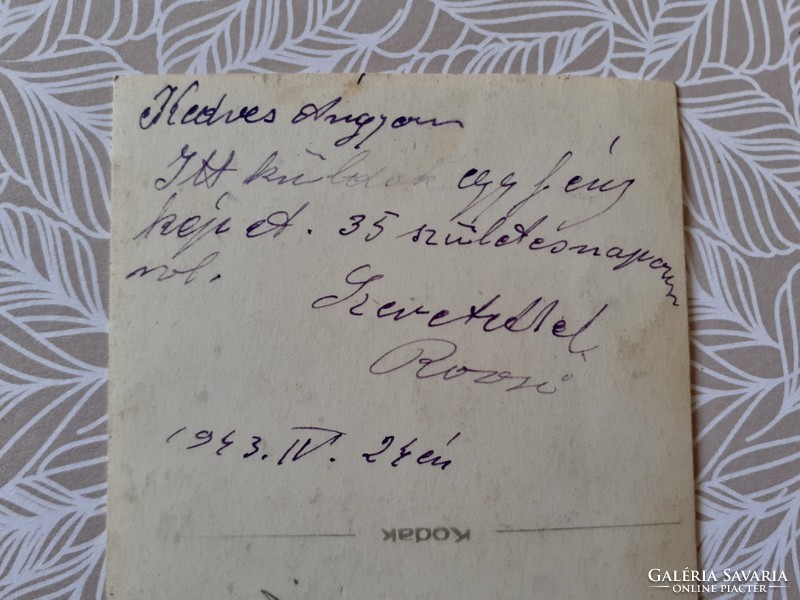 Kedves Ángyom
Itt küldök egy fény
képet. 35 születésnapom
rol.
Szeretettel
Rozsi
1943. IV. 24én
Kodak
GALÉRIA SAVARIA
ONLINE PIACTÉR